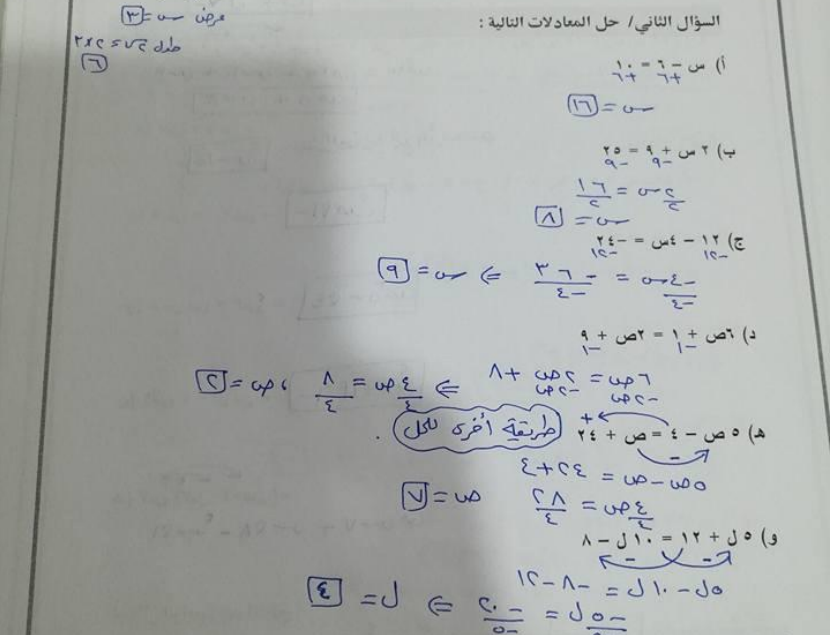 السؤال الثاني/ حل المعادلات التالية :
عرض س = ٣
طول ٢س = ٢ × ٣
٦
أ) س − ٦ = ١٠
+٦ +٦
س = ١٦
ب) ٢ س + ٩ = ٢٥
−٩ −٩
٢س/٢ = ١٦/٢
س = ٨
ج) ١٢ − ٤س = −٢٤
−١٢ −١٢
−٤س/−٤ = −٣٦/−٤ ⇐ س = ٩
د) ٦ص + ١ = ٢ص + ٩
−١ −١
٦ص = ٢ص + ٨
−٢ص −٢ص
⇐ ٤ص/٤ = ٨/٤ ، ص = ٢
هـ) ٥ ص − ٤ = ص + ٢٤
+
−
طريقة أخرى للحل .
٥ص − ص = ٢٤ + ٤
٤ص/٤ = ٢٨/٤ ص = ٧
و) ٥ ل + ١٢ = ١٠ ل − ٨
− −
٥ل − ١٠ل = −٨ − ١٢
−٥ل = −٢٠/−٥ ⇐ ل = ٤